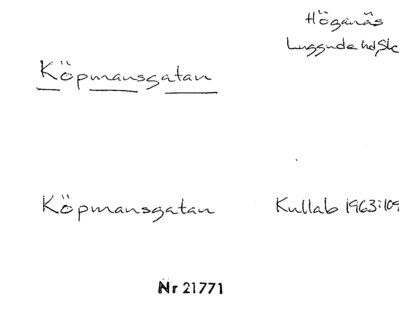 Höganäs
Luggude hd, Sk
Köpmansgatan
Köpmansgatan Kullab 1963:109
Nr 21771